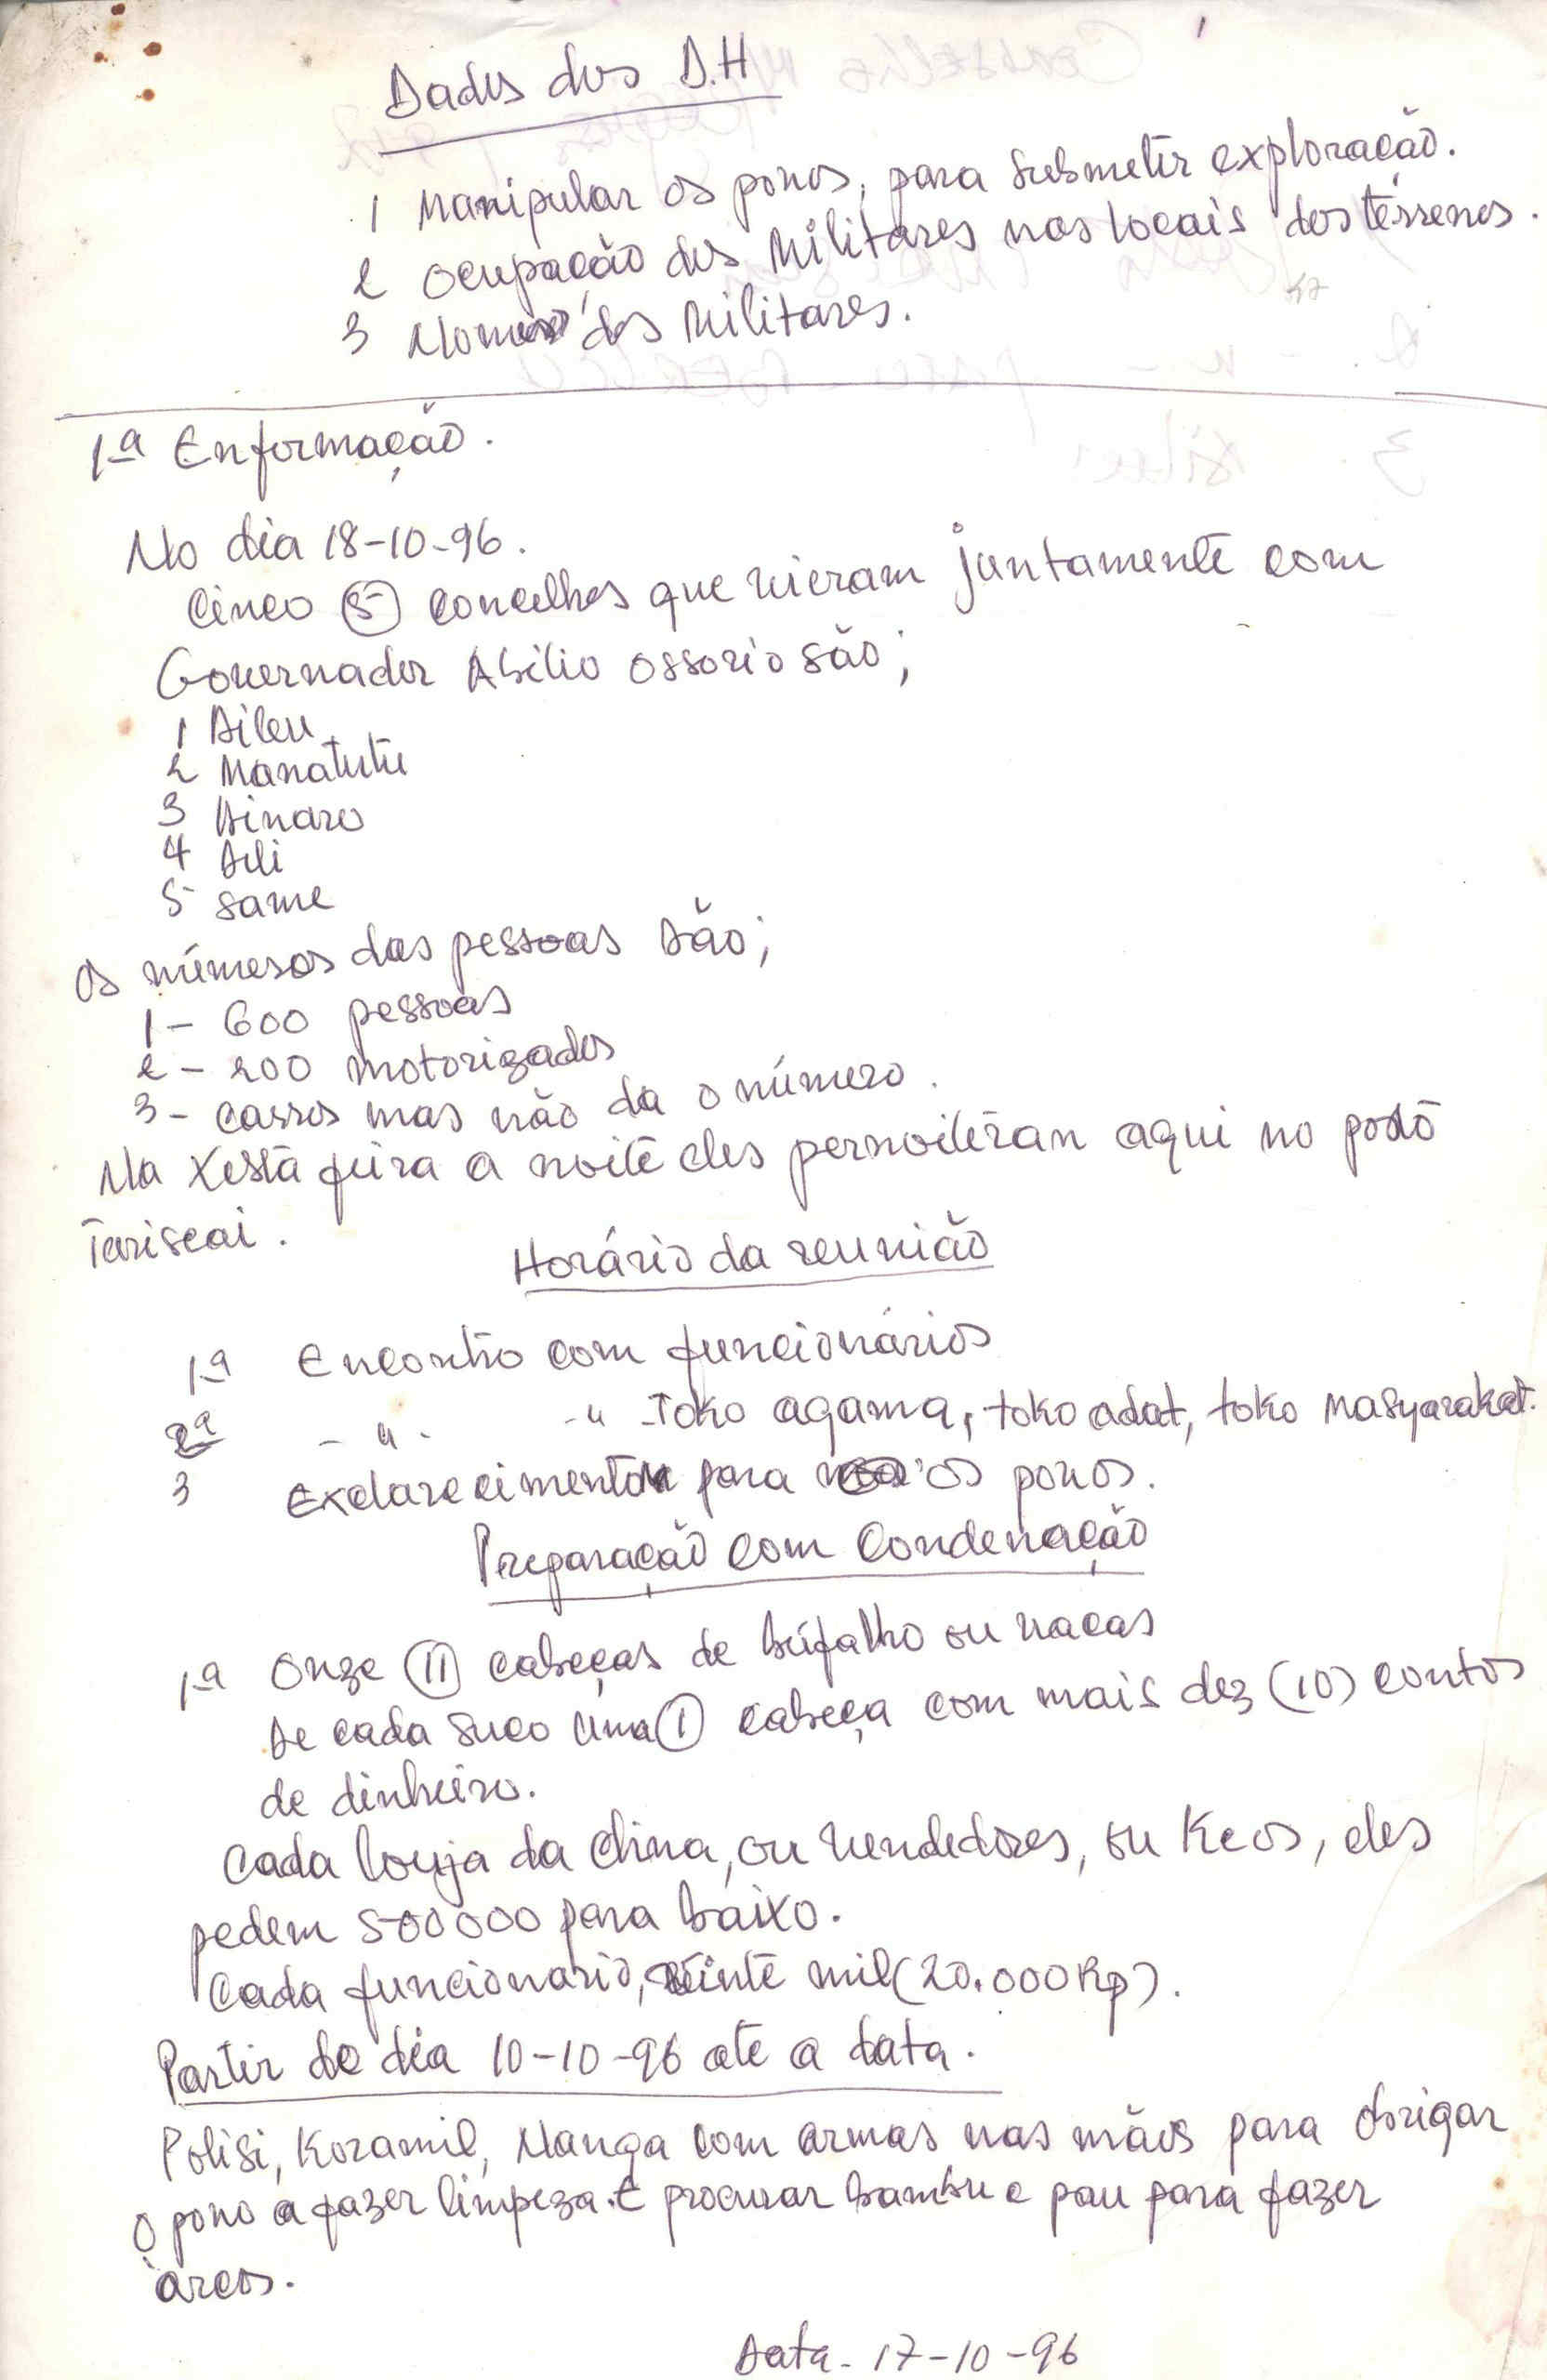 Dados dos D.H
1 Manipular os povos, para submetir exploração.
2 Ocupação dos Militares nos locais dos térrenos.
3 Nomes dos Militares.
1ª Enformação.
No dia 18-10-96.
Cinco (5) concelhos que vieram juntamente com
Governador Abilio Ossorio são;
1 Aileu
2 Manatutu
3 Ainaro
4 Dili
5 Same
Os números das pessoas são;
1 - 600 pessoas
2 - 200 motorizados
3 - carros mas não da o número.
Na Xesta feira a noite eles pernoiteran aqui no posto
Turiscai.
Horário da reunião
1ª Encontro com funcionários
2ª - " - - " Toko agama, toko adat, toko masyarakat.
3 Exclarecimento para os povos.
Preparação com Condenação
1ª Onze (11) cabeças de búfalho ou vacas
De cada suco uma (1) cabeça com mais dez (10) contos
de dinheiro.
Cada louja da China, ou vendedores, ou Keos, eles
pedem 500000 para baixo.
Cada funcionario, vinte mil (20.000 Rp).
Partir do dia 10-10-96 até a data.
Polisi, Koramil, Nanga com armas nas mãos para obrigar
o povo a fazer limpeza. E procurar bambu e pau para fazer
arcos.
Data - 17-10-96